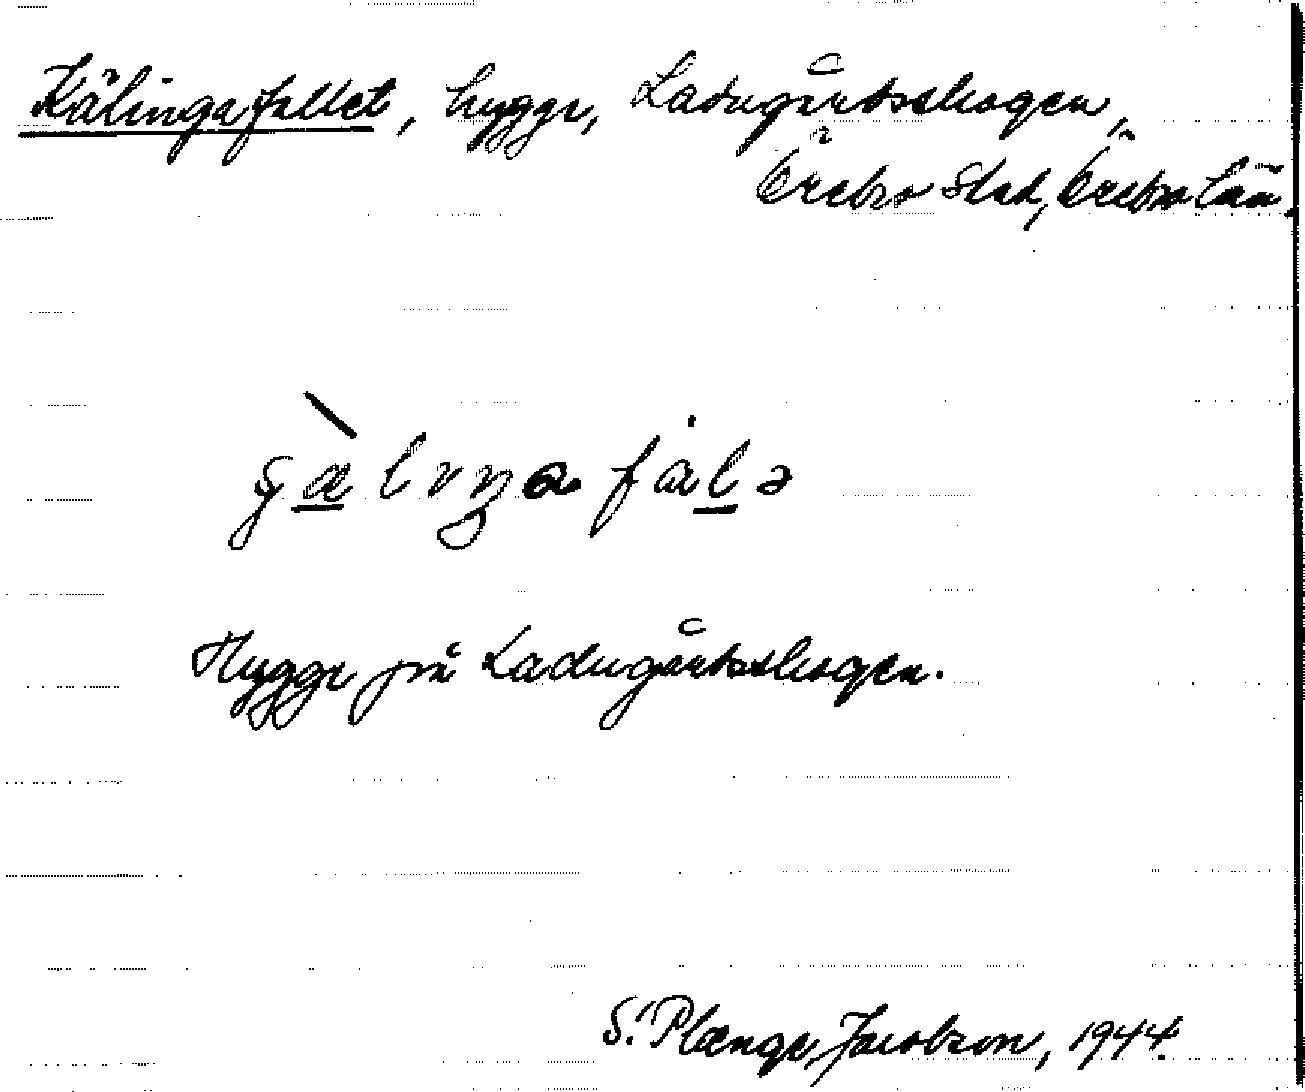 Kälingafallet, hygge, Ladugårdsskogen,
Örebro stad, Örebro län.
Hygge på Ladugårdsskogen.
S. Plenge, Jacobson, 1944.